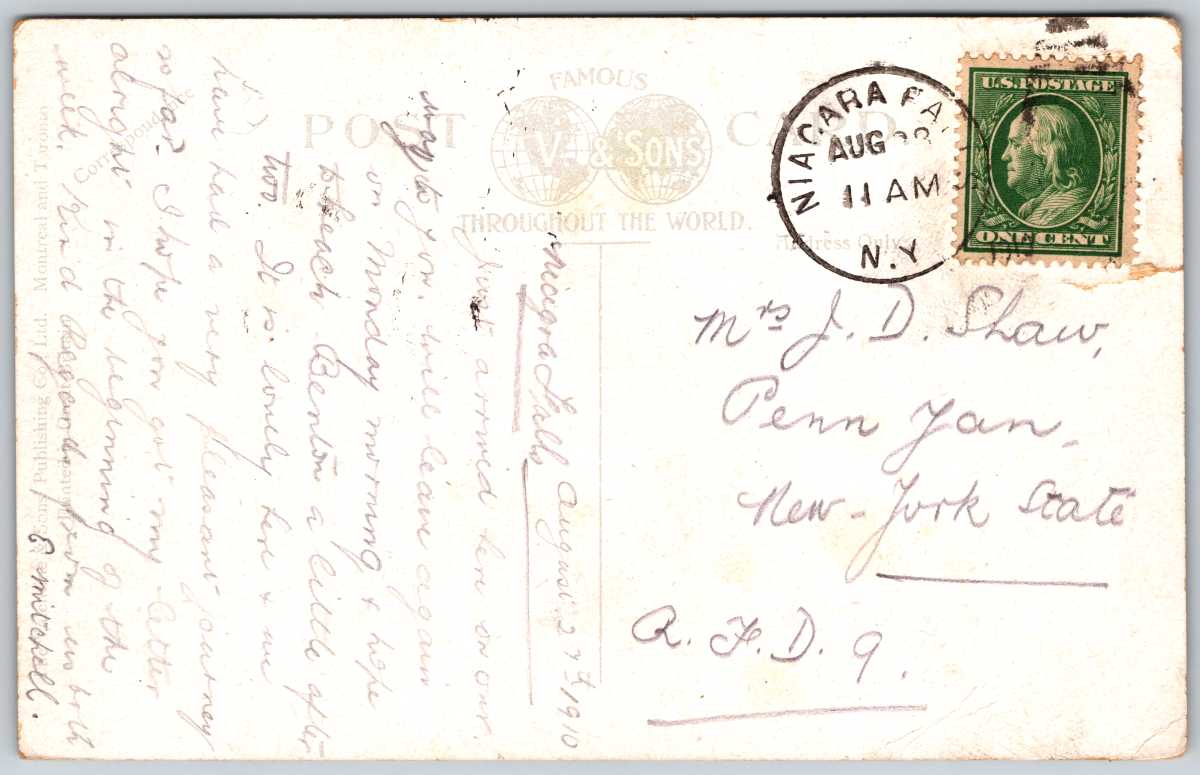 POST CARD
FAMOUS
V. & SONS
THROUGHOUT THE WORLD.
Address Only
NIAGARA FA
AUG
11 AM
N.Y
U.S. POSTAGE
ONE CENT
Mrs J. D. Shaw,
Penn Yan,
New-York State
R. F. D. 9.
Niagra Falls August 27th 1910
Just arrived here on our
way to you. will leave again
on Monday morning & hope
to reach Benton a little after
two. It is lovely here & we
have had a very pleasant journey
so far. I hope you got my letter
alright in the beginning of the
week. Kind Regards from us both
E mitchell.
Publishing Co., Ltd. Montreal and Toronto